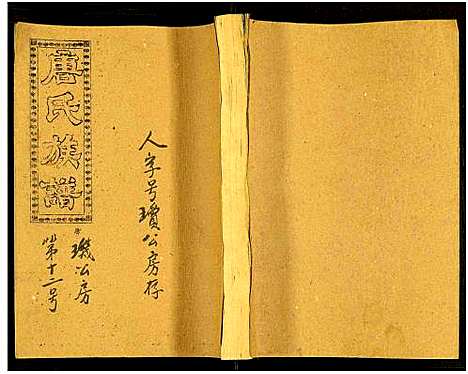 唐氏族譜
人字号瓊公房存
璣公房
第十二号